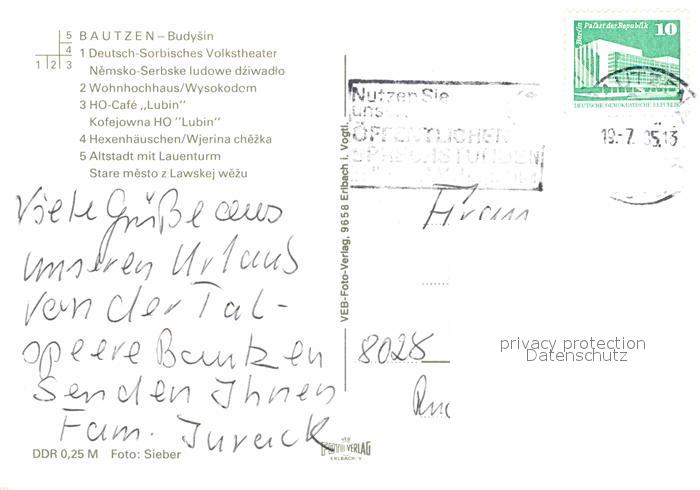 BAUTZEN – Budyšin
5
4
1 2 3
1 Deutsch-Sorbisches Volkstheater
Němsko-Serbske ludowe dźiwadło
2 Wohnhochhaus/Wysokodom
3 HO-Café „Lubin"
Kofejowna HO "Lubin"
4 Hexenhäuschen/Wjerina chěžka
5 Altstadt mit Lauenturm
Stare město z Lawskej wěžu
Viele Grüße aus
unseren Urlaub
von der Tal-
speere Bautzen
Senden Ihnen
Fam.
DDR 0,25 M Foto: Sieber
VEB-Foto-Verlag, 9658 Erlbach i. Vogtl.
VERLAG
ERLBACH V
Nutzen Sie
uns
ÖFFENTLICHEN
SPRECHSTUNDEN
Berlin, Palast der Republik
10
DEUTSCHE DEMOKRATISCHE REPUBLIK
19.-7. 85.13
8028
privacy protection
Datenschutz